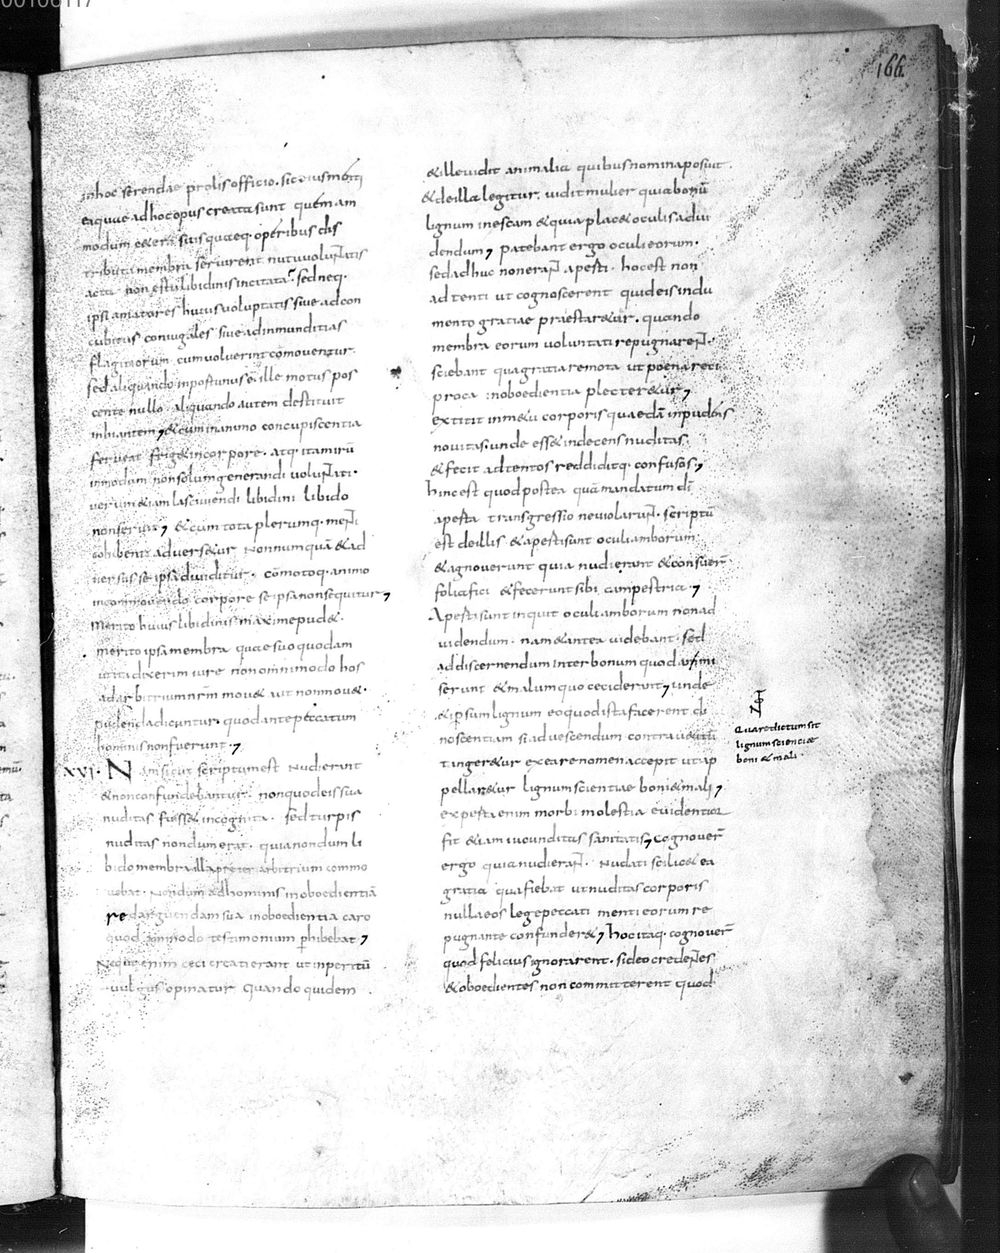 166
in hoc serendae prolis officio. sic eius menti
eaque ad hoc opus creata sunt quem am
modum cetera suis quaeq. operibus dis
tributa membra servirent nutu voluntatis
acta non estu libidinis incitata. sed neq.
ipsi amatores huius voluptatis sive ad con
cubitus coniugales sive ad inmunditias
flagitiorum cum voluerint cōmoventur.
sed aliquando inportunus ē ille motus pos
cente nullo. aliquando autem destituit
inhiantem, & cum in animo concupiscentia
ferveat friget in corpore. atq. ita mirū
in modum non solum generandi voluntati.
verum &iam lasciviendi libidini libido
non servit, & cum tota plerumq. menti
cohibenti advers&ur nonnumquā & ad
versus se ipsa dividitur. cōmotoq. animo
in commovendo corpore se ipsa non sequitur,
Merito huius libidinis maxime pud&.
merito ipsa membra quae suo quodam
ut ita dixerim iure non omnimodo hos
ad arbitrium nrm mov& aut non mov&.
pudenda dicuntur. quod ante peccatum
hominis non fuerunt,
XVI. Nam sicut scriptum est Nudi erant
& non confundebantur. non quod eis sua
nuditas fuisset incognita. sed turpis
nuditas nondum erat. quia nondum li
bido membra illa praeter arbitrium commo
vebat. Nondum ad hominis inoboedientiā
redarguendam sua inoboedientia caro
quodāmmodo testimonium phibebat,
Neque enim ceci creati erant ut inperitū
vulgus opinatur quando quidem
& ille vidit animalia quibus nomina posuit.
& de illa legitur. vidit mulier quia bonū
lignum in escam & quia plac& oculis ad vi
dendum, patebant ergo oculi eorum.
sed ad hoc non erant aperti. hoc est non
adtenti ut cognoscerent quid eis indu
mento gratiae praestar&ur. quando
membra eorum voluntati repugnarent.
sciebant qua gratia remota ut poena reci
proca inoboedientia plecter&ur,
extitit in motu corporis quaedā inpudens
novitas. unde ess& indecens nuditas.
& fecit adtentos reddiditq. confusos,
hinc est quod postea quā mandatum di
aperta transgressio neviolarunt. scriptū
est de illis & aperti sunt oculi amborum
& agnoverunt quia nudi erant & consuer
folia fici & fecerunt sibi campestria,
Aperti sunt inquit oculi amborum non ad
videndum. nam & antea videbant. sed
ad discernendum inter bonum quod ami
serunt & malum quo ceciderunt, unde
& ipsum lignum eo quod ista facerent di
noscentiam si ad vescendum contra vetitū
tanger&ur ex ea re nomen accepit ut ap
pellar&ur lignum scientiae boni & mali,
experta enim morbi molestia evidentior
fit &iam iucunditas sanitatis, Cognover
ergo quia nudi erant. Nudati scilic& ea
gratia qua fiebat ut nuditas corporis
nulla eos lege peccati menti eorum re
pugnante confunder&, hoc itaq. cognover
quod felicius ignorarent. si deo credentes
& oboedientes non committerent quod
Quare dictum sit
lignum scientiae
boni & mali